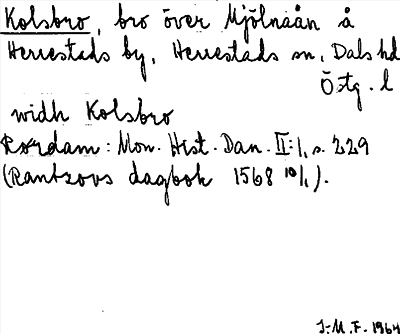 Kolsbro, bro över Mjölnaån å
Herrestads by, Herrestads sn, Dals hd
Östg. l
widh Kolsbro
Rördam: Mon. Hist. Dan. II:1, s. 229
(Rantzovs dagbok 1568 10/1).
J-M. F. 1964